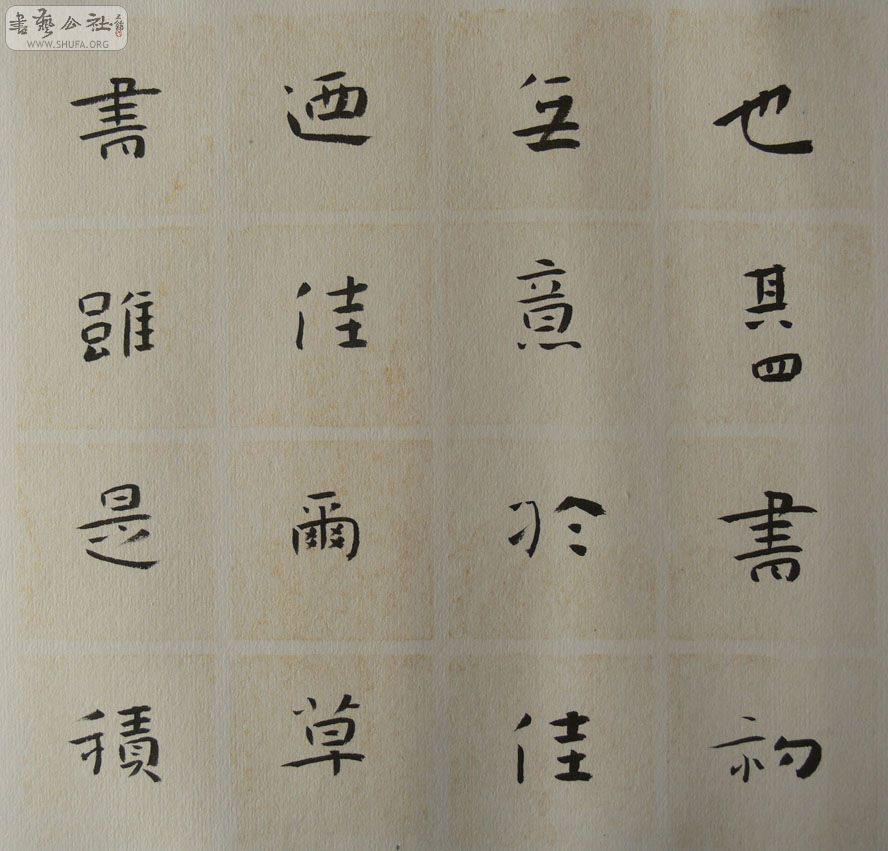 也其四書初
無意於佳
迺佳爾草
書雖是積
書艺公社
WWW.SHUFA.ORG